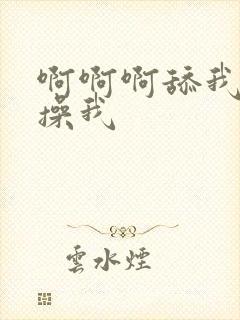 啊啊啊舔我
操我
雲水煙